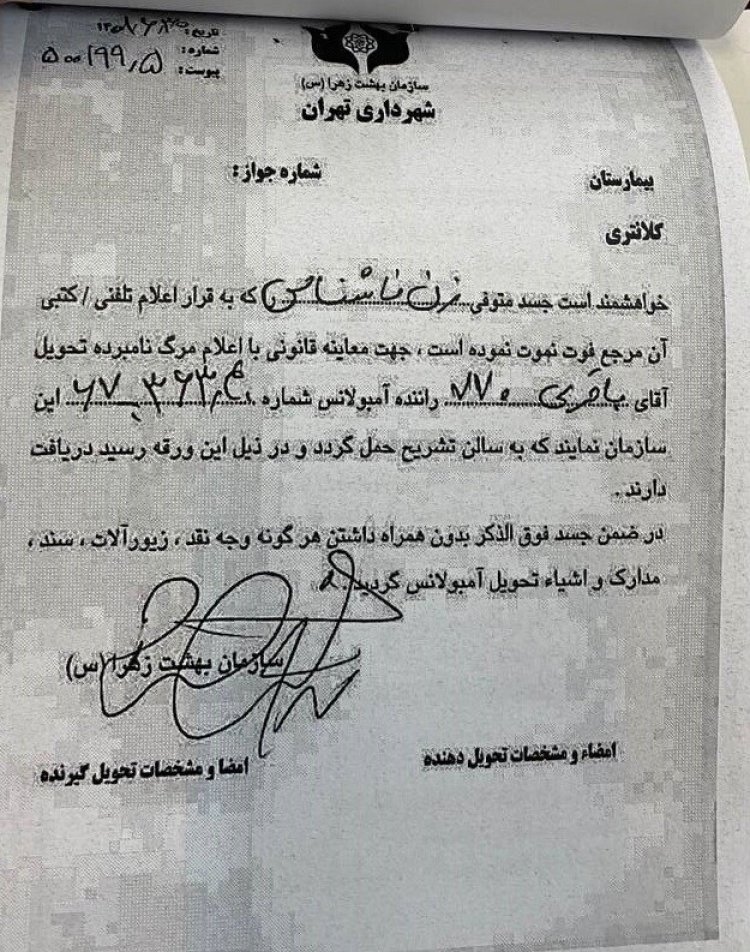 تاریخ:
شماره:
پیوست:
سازمان بهشت زهرا (س)
شهرداری تهران
بیمارستان
شماره جواز:
کلانتری
خواهشمند است جسد متوفی زن ناشناس که به قرار اعلام تلفنی / کتبی
آن مرجع فوت نموت نموده است ، جهت معاینه قانونی با اعلام مرگ نامبرده تحویل
آقای باقری ۷۷۰ راننده آمبولانس شماره این
سازمان نمایند که به سالن تشریح حمل گردد و در ذیل این ورقه رسید دریافت
دارند .
در ضمن جسد فوق الذکر بدون همراه داشتن هر گونه وجه نقد ، زیورآلات ، سند ،
مدارک و اشیاء تحویل آمبولانس گردید .
سازمان بهشت زهرا (س)
امضاء و مشخصات تحویل دهنده
امضا و مشخصات تحویل گیرنده